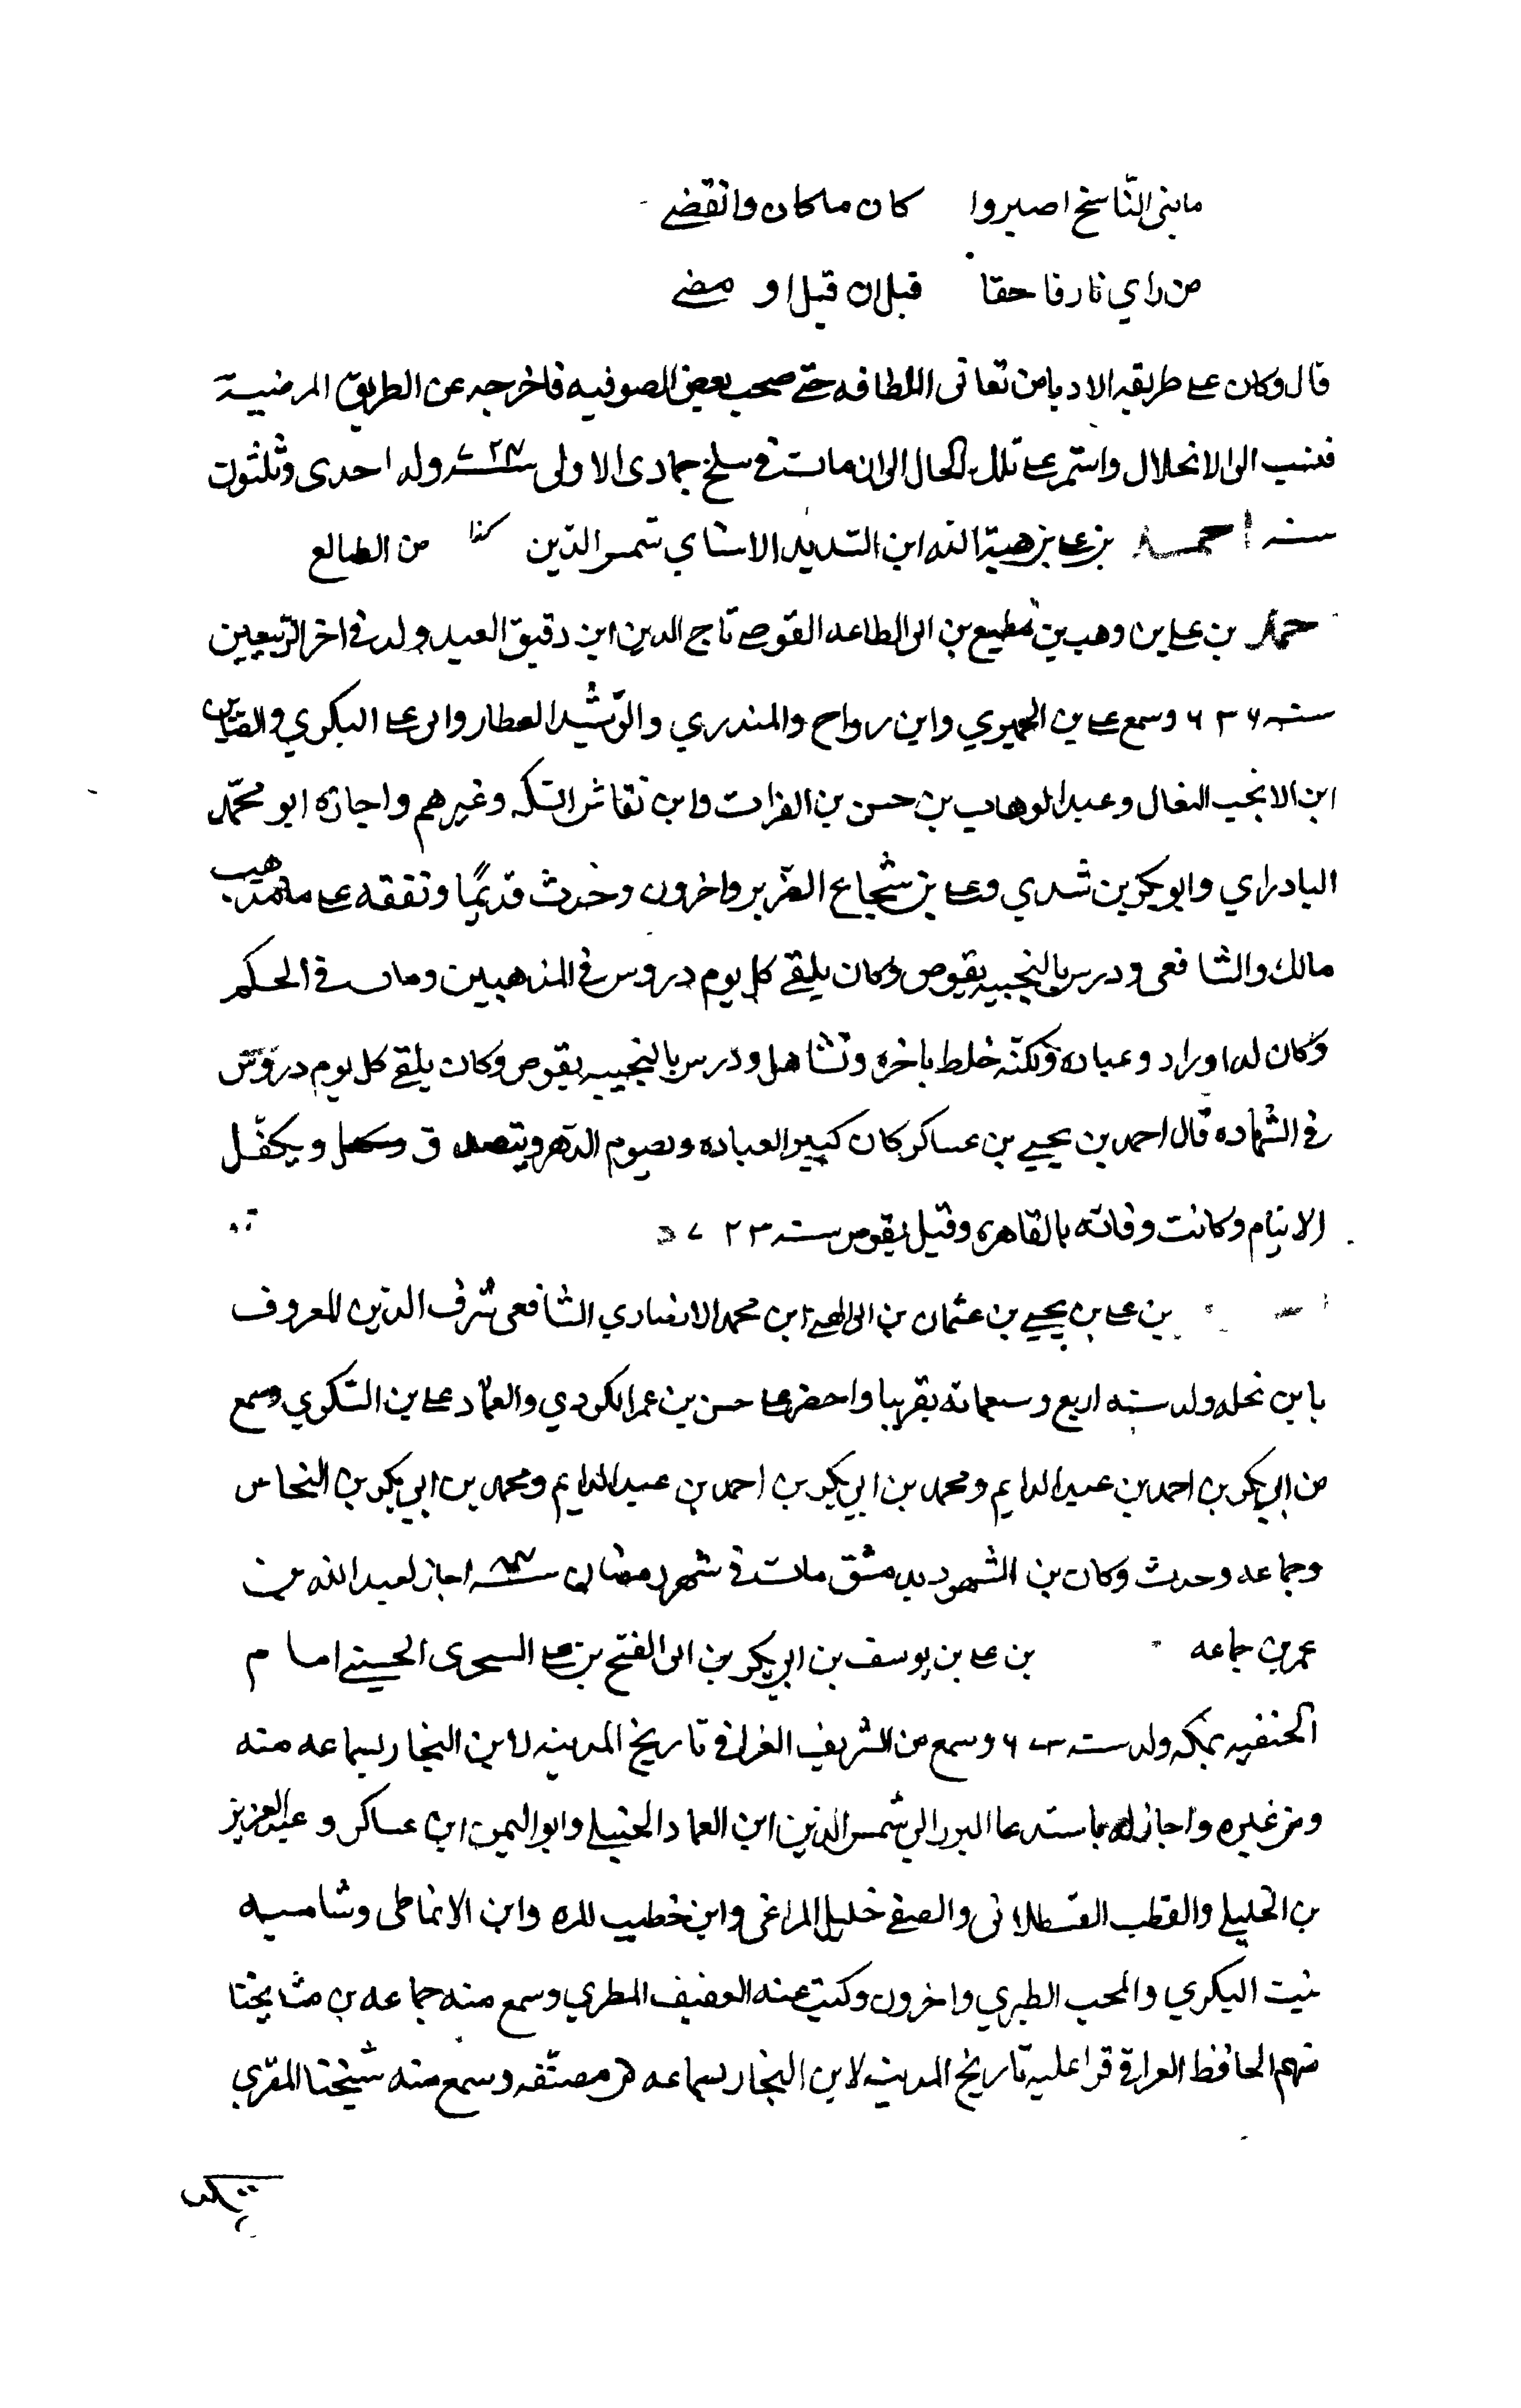 ما بنى التناسخ اصبروا كان ما كان وانقضى
من راي نارفا حقا قبل ان قيل او مضى
قال وكان على طريقه الادبا من تعانى اللطافه حتى صحب بعض الصوفيه فاخرجه عن الطريق المرضية
فنسب الى الانحلال واستمر على تلك الحال الى ان مات في سلخ جمادى الاولى سنة ٧٢٣ وله احدى وثلثون
سنه احمد بن على بن هبة الله ابن السديد الاسناي شمس الدين كذا من الطالع
احمد بن على بن وهب بن مطيع بن ابى الطاعه القوصى تاج الدين ابن دقيق العيد ولد في اخر الربيعين
سنه ٦٣٦ وسمع على بن الحميري وابن رواح والمندري والرشيد العطار وابى على البكري
ابن الانجب النغال وعبد الوهاب بن حسن بن الفرات وابن نقاش السكه وغيرهم واجازه ابو محمّد
البادراي وابو بكر بن شدي وعلى بن شجاع الضرير واخرون وحدث قديمًا وتفقه على مذهب
مالك والشافعى ودرس بالنجيبيه بقوص وكان يلقى كل يوم دروس في المذهبين وناب في الحكم
وكان له اوراد وعباده ولكنّه خلط باخره وتشاهل ودرس بالنجيبيه بقوص وكان يلقى كل يوم دروس
في الشهاده قال احمد بن يحيى بن عساكر كان كبير العباده وبصوم الدهر ويتصدق ويكفّل
الايتام وكانت وفاته بالقاهره وقيل بقوص سنه ٧٢٣
بن على بن يحيى بن عثمان بن ابى ابن محمد الانصاري الشافعى شرف الدين المعروف
بابن نحله ولد سنه اربع وسبعمائه تقريبا واحضر على حسن بن عمر الكردي والعماد على بن السكري وسمع
من ابي بكر بن احمد بن عبد الدايم ومحمد بن ابي بكر بن احمد بن عبد الدايم ومحمد بن ابي بكر بن النحاس
وجماعه وحدث وكان بن الشهود بدمشق مات في شهر رمضان سنة اجاز لعبد الله بن
عمر بن جماعه بن على بن يوسف بن ابي بكر بن ابى الفتح بن على السجزى الحسيني امام
الحنفيه بمكه ولد سنه ٦٧٣ وسمع من الشريف الغرافي تاريخ المدينه لابن النجار بسماعه منه
ومن غيره واجاز له باستدعا البرزالي شمس الدين ابن العماد الحنبلى وابو اليمن ابن عساكر وعبد العزيز
بن الخليلي والقطب القسطلانى والصفى خليل المراغى وابن خطيب المزه وابن الانماطى وشاميه
بنت البكري والمحب الطبري واخرون وكتب عنه العفيف المطري وسمع منه جماعه بن مشايخنا
منهم الحافظ العراقي قرا عليه تاريخ المدينه لابن النجار بسماعه من مصنّفه وسمع منه شيخنا المقري